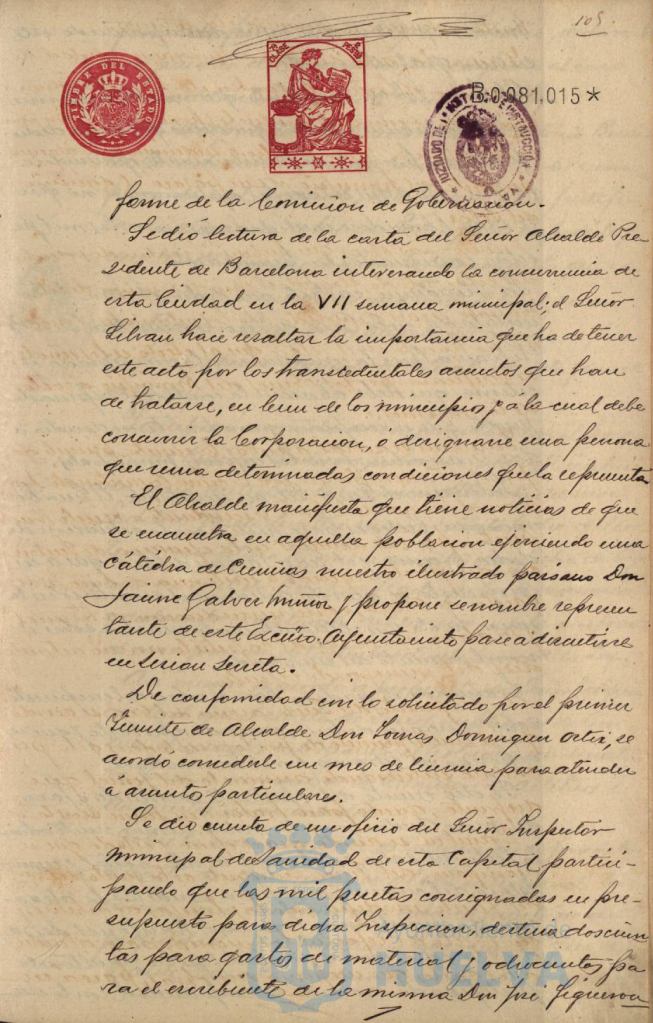 105
TIMBRE DEL ESTADO
CLASE
B0,081,015*
JUZGADO DE INSTRUCCIÓN
forme de la Comision de Gobernacion.
Se dió lectura de la carta del Señor Alcalde Pre
sidente de Barcelona interesando la concurrencia de
esta Ciudad en la VII semana municipal; el Señor
Silvan hace resaltar la importancia que ha de tener
este acto por los transcedentales asuntos que han
de tratarse, en bien de los municipios y á la cual debe
concurrir la Corporacion, ó designarse una persona
que reuna determinadas condiciones que la represente
El Alcalde manifiesta que tiene noticias de que
se encuentra en aquella poblacion ejerciendo una
cátedra de Ciencias nuestro ilustrado paisano Don
Jaime Galvez Muñoz y propone se nombre represen
tante de este Excmo. Ayuntamiento pase á discutirse
en Sesion Secreta.
De conformidad con lo solicitado por el primer
Teniente de Alcalde Don Tomas Dominguez Ortiz, se
acordó concederle un mes de licencia para atender
á asuntos particulares.
Se dio cuenta de un oficio del Señor Inspector
municipal de Sanidad de esta Capital partici-
pando que las mil pesetas consignadas en pre-
supuesto para dicha Inspeccion, destina doscien
tas para gastos de material y ochocientas pa
ra el escribiente de la misma Don José Figueroa
HUELVA